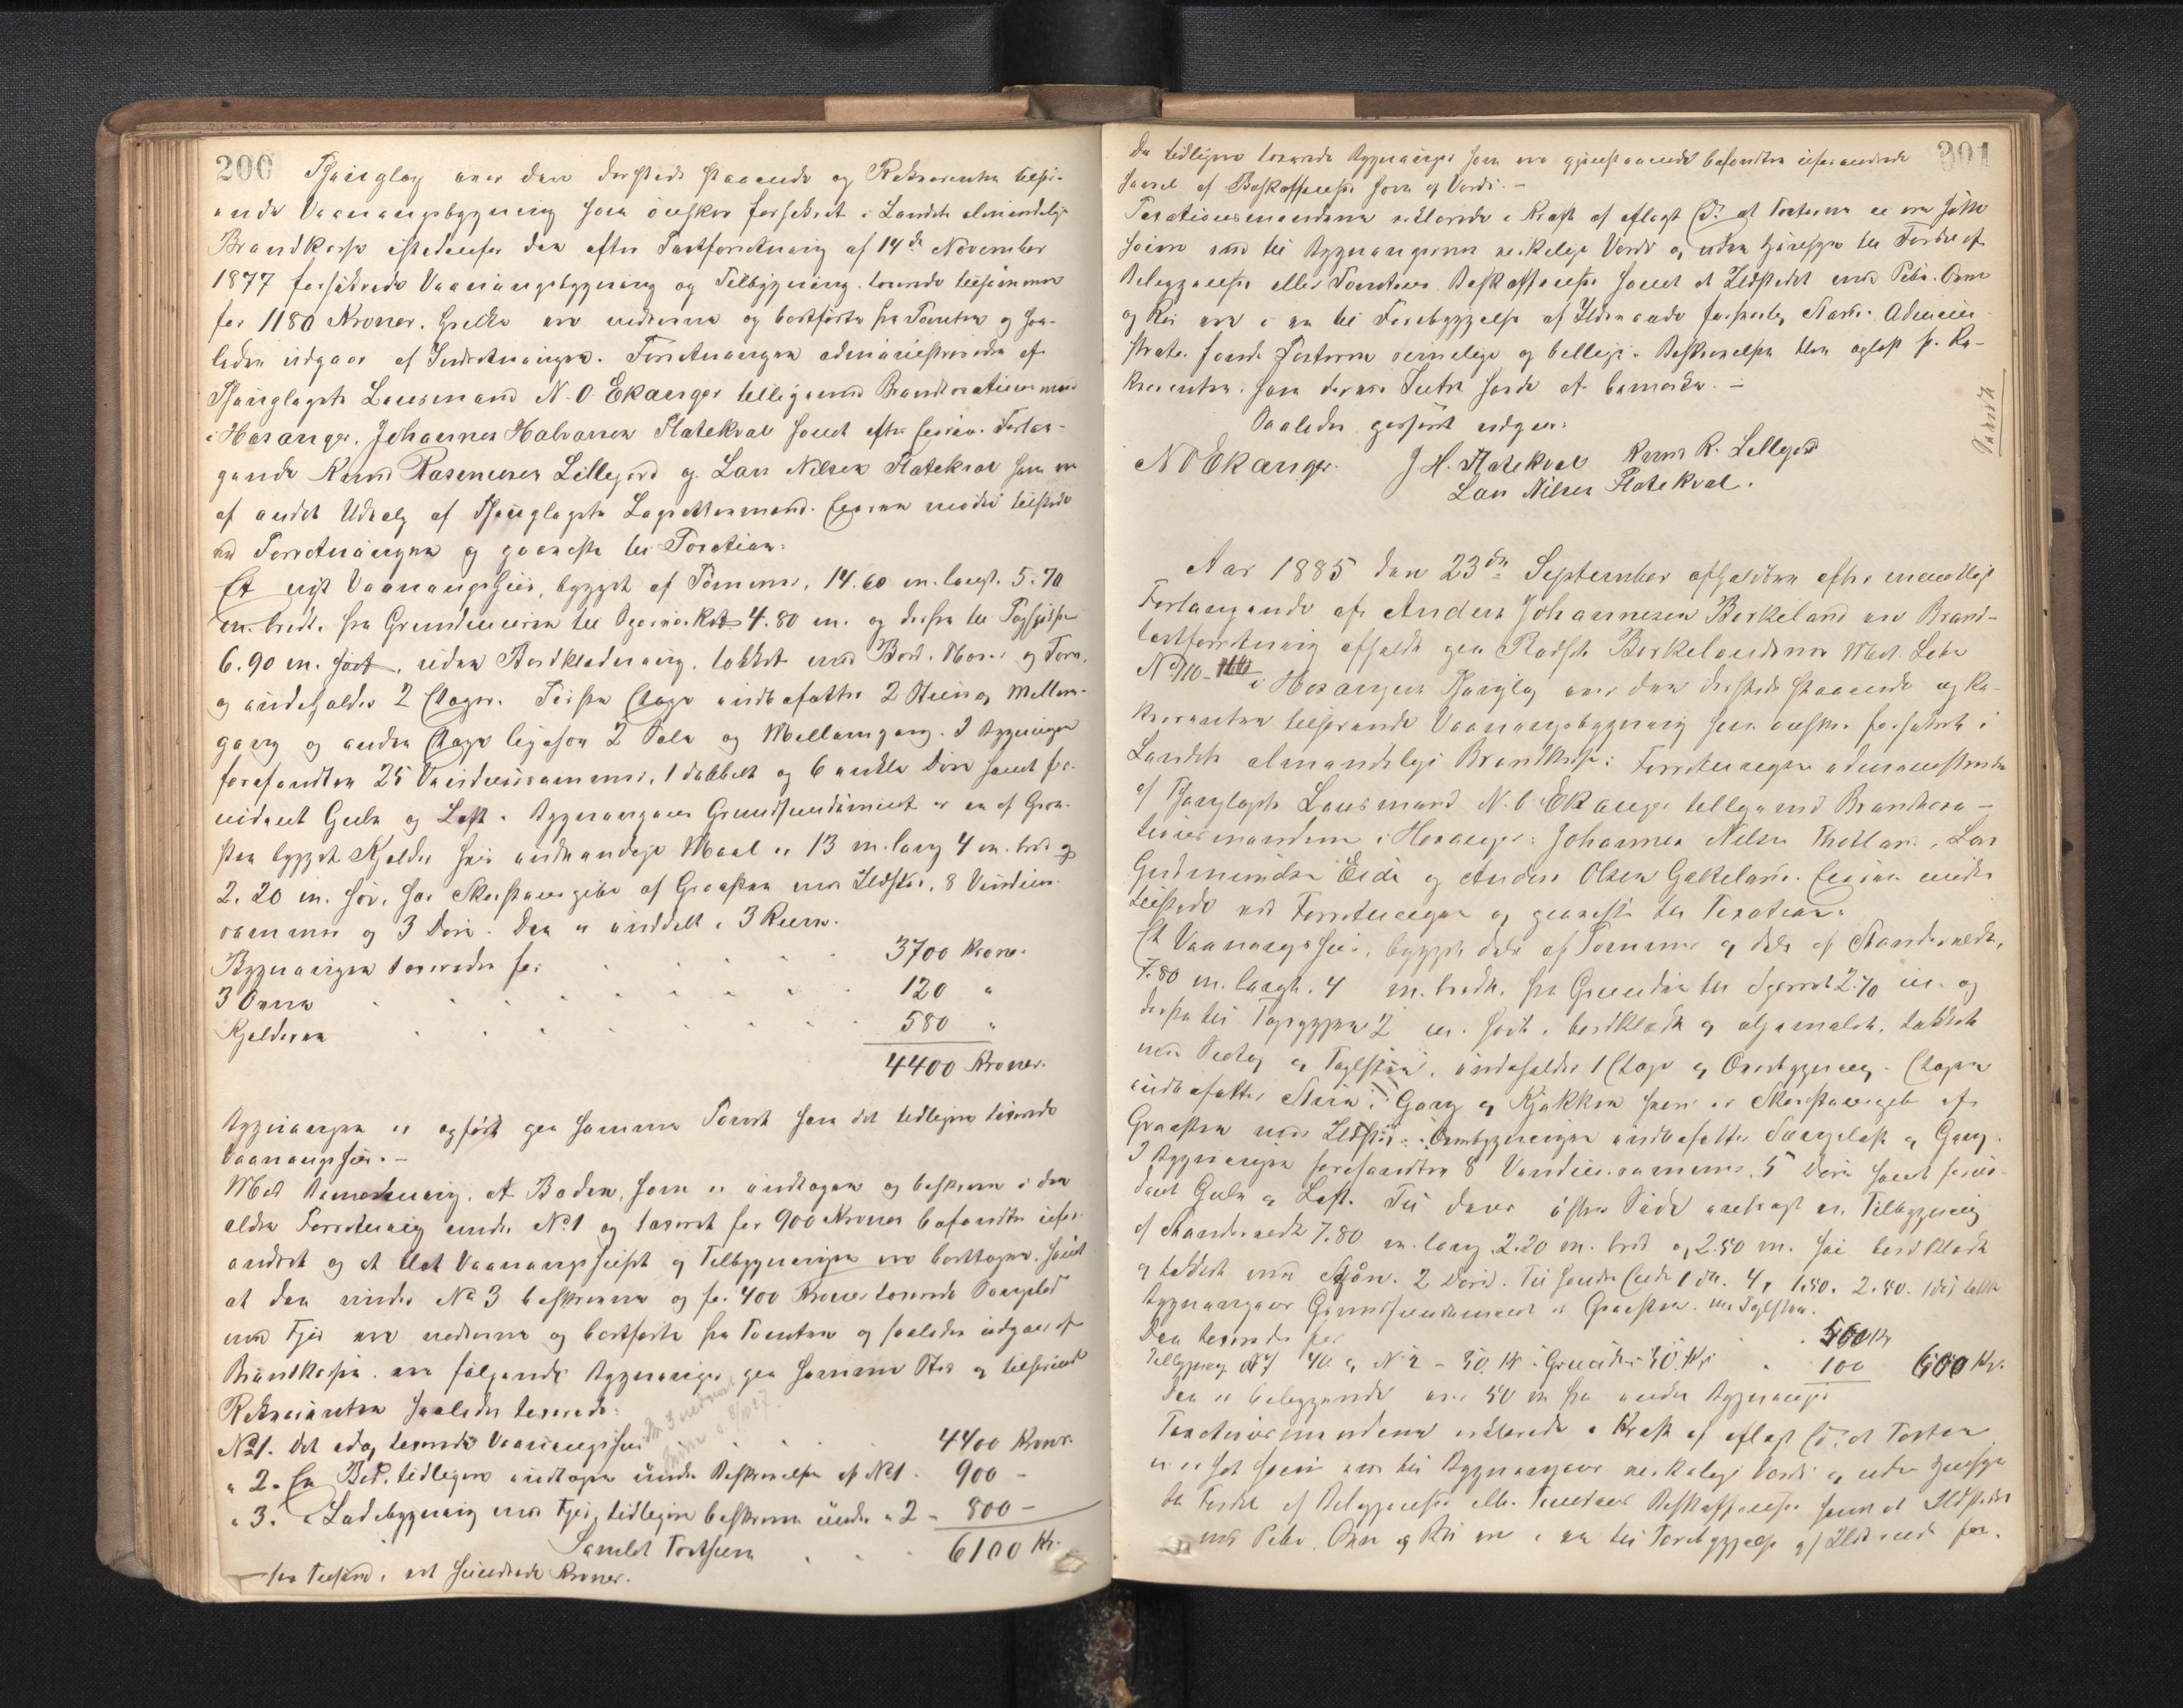 200
Thinglag over den dersteds staaende og Rekvirenten tilhø-
rende Vaaningsbygning som ønskes forsikret i Landets almindelige
Brandkasse istedenfor den efter Taxtforretning af 14de November
1877 forsikrede Vaaningsbygning og Tilbygning taxerede tilsammen
for 1180 Kroner, hvilke ere nedrevne og bortførte fra Tomten og saa-
ledes udgaar af Indretningen. Forretningen administreredes af
Thinglagets Lensmand N. O. Ekanger tilligemed Brandtaxationsmand
i Hosanger, Johannes Halvorsen Flatekval samt efter Eierens Forlan-
gende Knud Rasmussen Lillejord og Lars Nilsen Flatekval som er
af andet Udvalg af Thinglagets Lagrettesmænd. Eieren mødte tilstede
ved Forretningen og passerte til Taxation:
Et nyt Vaaningshus, bygget af Tømmer, 14.60 m. langt. 5.70
m. bredt, fra Grundmuren til Øgserskot 4.80 m. og derfra til Tagspidsen
6.90 m. høit, uden Bordklædning, tækket med Bord, Næver og Torv,
og indeholder 2 Etager. Første Etage indbefatter 2 Stuer og Mellem-
gang og anden Etage ligesaa 2 Sale og Mellemgang. I Bygningen
forefandtes 25 Vinduesrammer, 1 dobbelt og 6 enkle Døre samt for-
nødent Gulv og Loft. Bygningens Grundfundament er en af Graa-
sten bygget Kjelder hvis indvendige Maal er 13 m. lang 4 m. bred og
2.20 m. høi, har Skorstenspibe af Graasten med Ildsted, 8 Vindues-
rammer og 3 Døre. Den er inddelt i 3 Rum.
Bygningen taxeredes for 3700 Kroner.
3 Ovne 120 "
Kjelderen 580 "
4400 Kroner.
Bygningen er opført paa samme Tomt som det tidligere taxerede
Vaaningshus. -
Med Bemærkning, at Boden, som er indtagen og beskreven i den
ældre Forretning under No 1 og taxeret for 900 Kroner befandtes ufor-
andret og at det Vaaningshuset og Tilbygningen ere borttagne, samt
at den under No 3 beskrevne og for 400 Kroner taxerede
med ere nedrevne og bortførte fra Tomten og saaledes udgaar af
Brandkassen, ere følgende Bygninger paa samme Sted og tilhørende
Rekvirenten saaledes taxerede:
No 1. Det idag taxerede Vaaningshus 4400 Kroner.
" 2. En Bod, tidligere indtagen under Beskrivelsen af No 1 900 -
" 3. " Ladebygning med, tidligere beskreven under " 2 - 800 -
Samlet Taxtsum 6100 Kr.
sex Tusind, et hundrede Kroner.
301
De tidligere taxerede Bygninger som ere gjenstaaende befandtes uforandrede
saavel af Beskaffenhed som af Værdi. -
Taxationsmændene erklærede i Kraft af aflagt Ed, at Taxterne ei ere satte
høiere end til Bygningernes virkelige Værdi og uden Hensyn til Fordel af
Beliggenhed eller Tomtens Beskaffenhed samt at Ildstedet med Pibe, Ovne
og Rør ere i en til Forebyggelse af Ildsvaade forsvarlig Stand. Admini-
strator fandt Taxterne rimelige og billige. Beskrivelsen blev oplæst for Re-
kvirenten, som derved Intet havde at bemærke. -
Saaledes passeret udgives:
N O Ekanger. J H. Flatekval Knud R. Lillejord
Lars Nilsen Flatekval.
Aar 1885 den 23de September afholdtes efter mundtligt
Forlangende af Anders Johannesen Berkeland en Brand-
taxtforretning afholdt paa Pladset Berkelandsnes Matr. Løbe
No 110 i Hosangers Thinglag over den dersteds staaende og Re-
kvirenten tilhørende Vaaningsbygning som ønskes forsikret i
Landets almindelige Brandkasse. Forretningen administreredes
af Thinglagets Lensmand N. O Ekanger tilligemed Brandtaxa-
tionsmændene i Hosanger: Johannes Nilsen, Lars
Gudmundsen Eide og Anders Olsen. Eieren mødte
tilstede ved Forretningen og passerte til Taxation:
Et Vaaningshus, bygget dels af Tømmer og dels af Standerverk,
7.80 m. langt, 4 m. bredt, fra Grunden til Øgserskot 2.70 m. og
derfra til Tagryggen 2 m. høit, bordklædt og oljemalet, tækket
med og Taglsten, indeholder 1 Etage og Overbygning. Etagen
indbefatter Stue, Gang og Kjøkken hvori er Skorstenspibe af
Graasten med Ildsted. Overbygningen indbefatter Sængeloft og Gang.
I Bygningen forefandtes 8 Vinduesrammer, 5 Døre samt fornø-
dent Gulv og Loft. Til dens østre Side anbragt en Tilbygning
af Standerverk 7.80 m. lang 2.20 m. bred og 2.50 m. høi bordklædt
og tækket med 2 Døre. Til søndre Ende 1 do. 4, 1.80. 2.80.
Bygningens Grundfundament er Graasten.
Den taxeredes for 500 Kr
Tilbygning No 1 40 og No 2 - 30 Kr. Grunden 30 Kr. 100 600 Kr.
Den er beliggende over 50 m fra andre Bygninger
Taxationsmændene erklærede i Kraft af aflagt Ed, at Taxten
ei er sat høiere end til Bygningens virkelige Værdi og uden Hensyn
til Fordel af Beliggenhed eller Tomtens Beskaffenhed samt at Ildstedet
med Pibe, Ovn og Rør ere i en til Forebyggelse af Ildsvaade for-